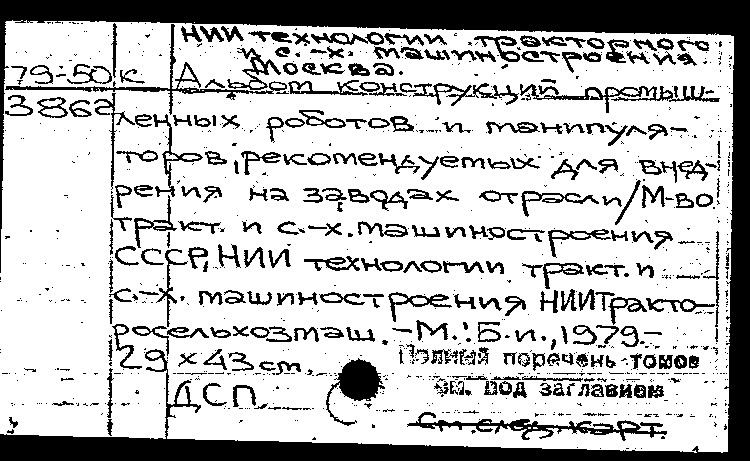 НИИ технологии тракторного
и с.-х. машиностроения.
Москва.
79-50к Альбом конструкций промыш-
3862
ленных роботов и манипуля-
торов, рекомендуемых для внед-
рения на заводах отрасли/М-во
тракт. и с.-х. машиностроения
СССР, НИИ технологии тракт. и
с.-х. машиностроения НИИТракто-
росельхозмаш. - М.: Б.и., 1979.-
29 х 43 см.
Полный перечень томов
см. под заглавием
ДСП
См. след. карт.